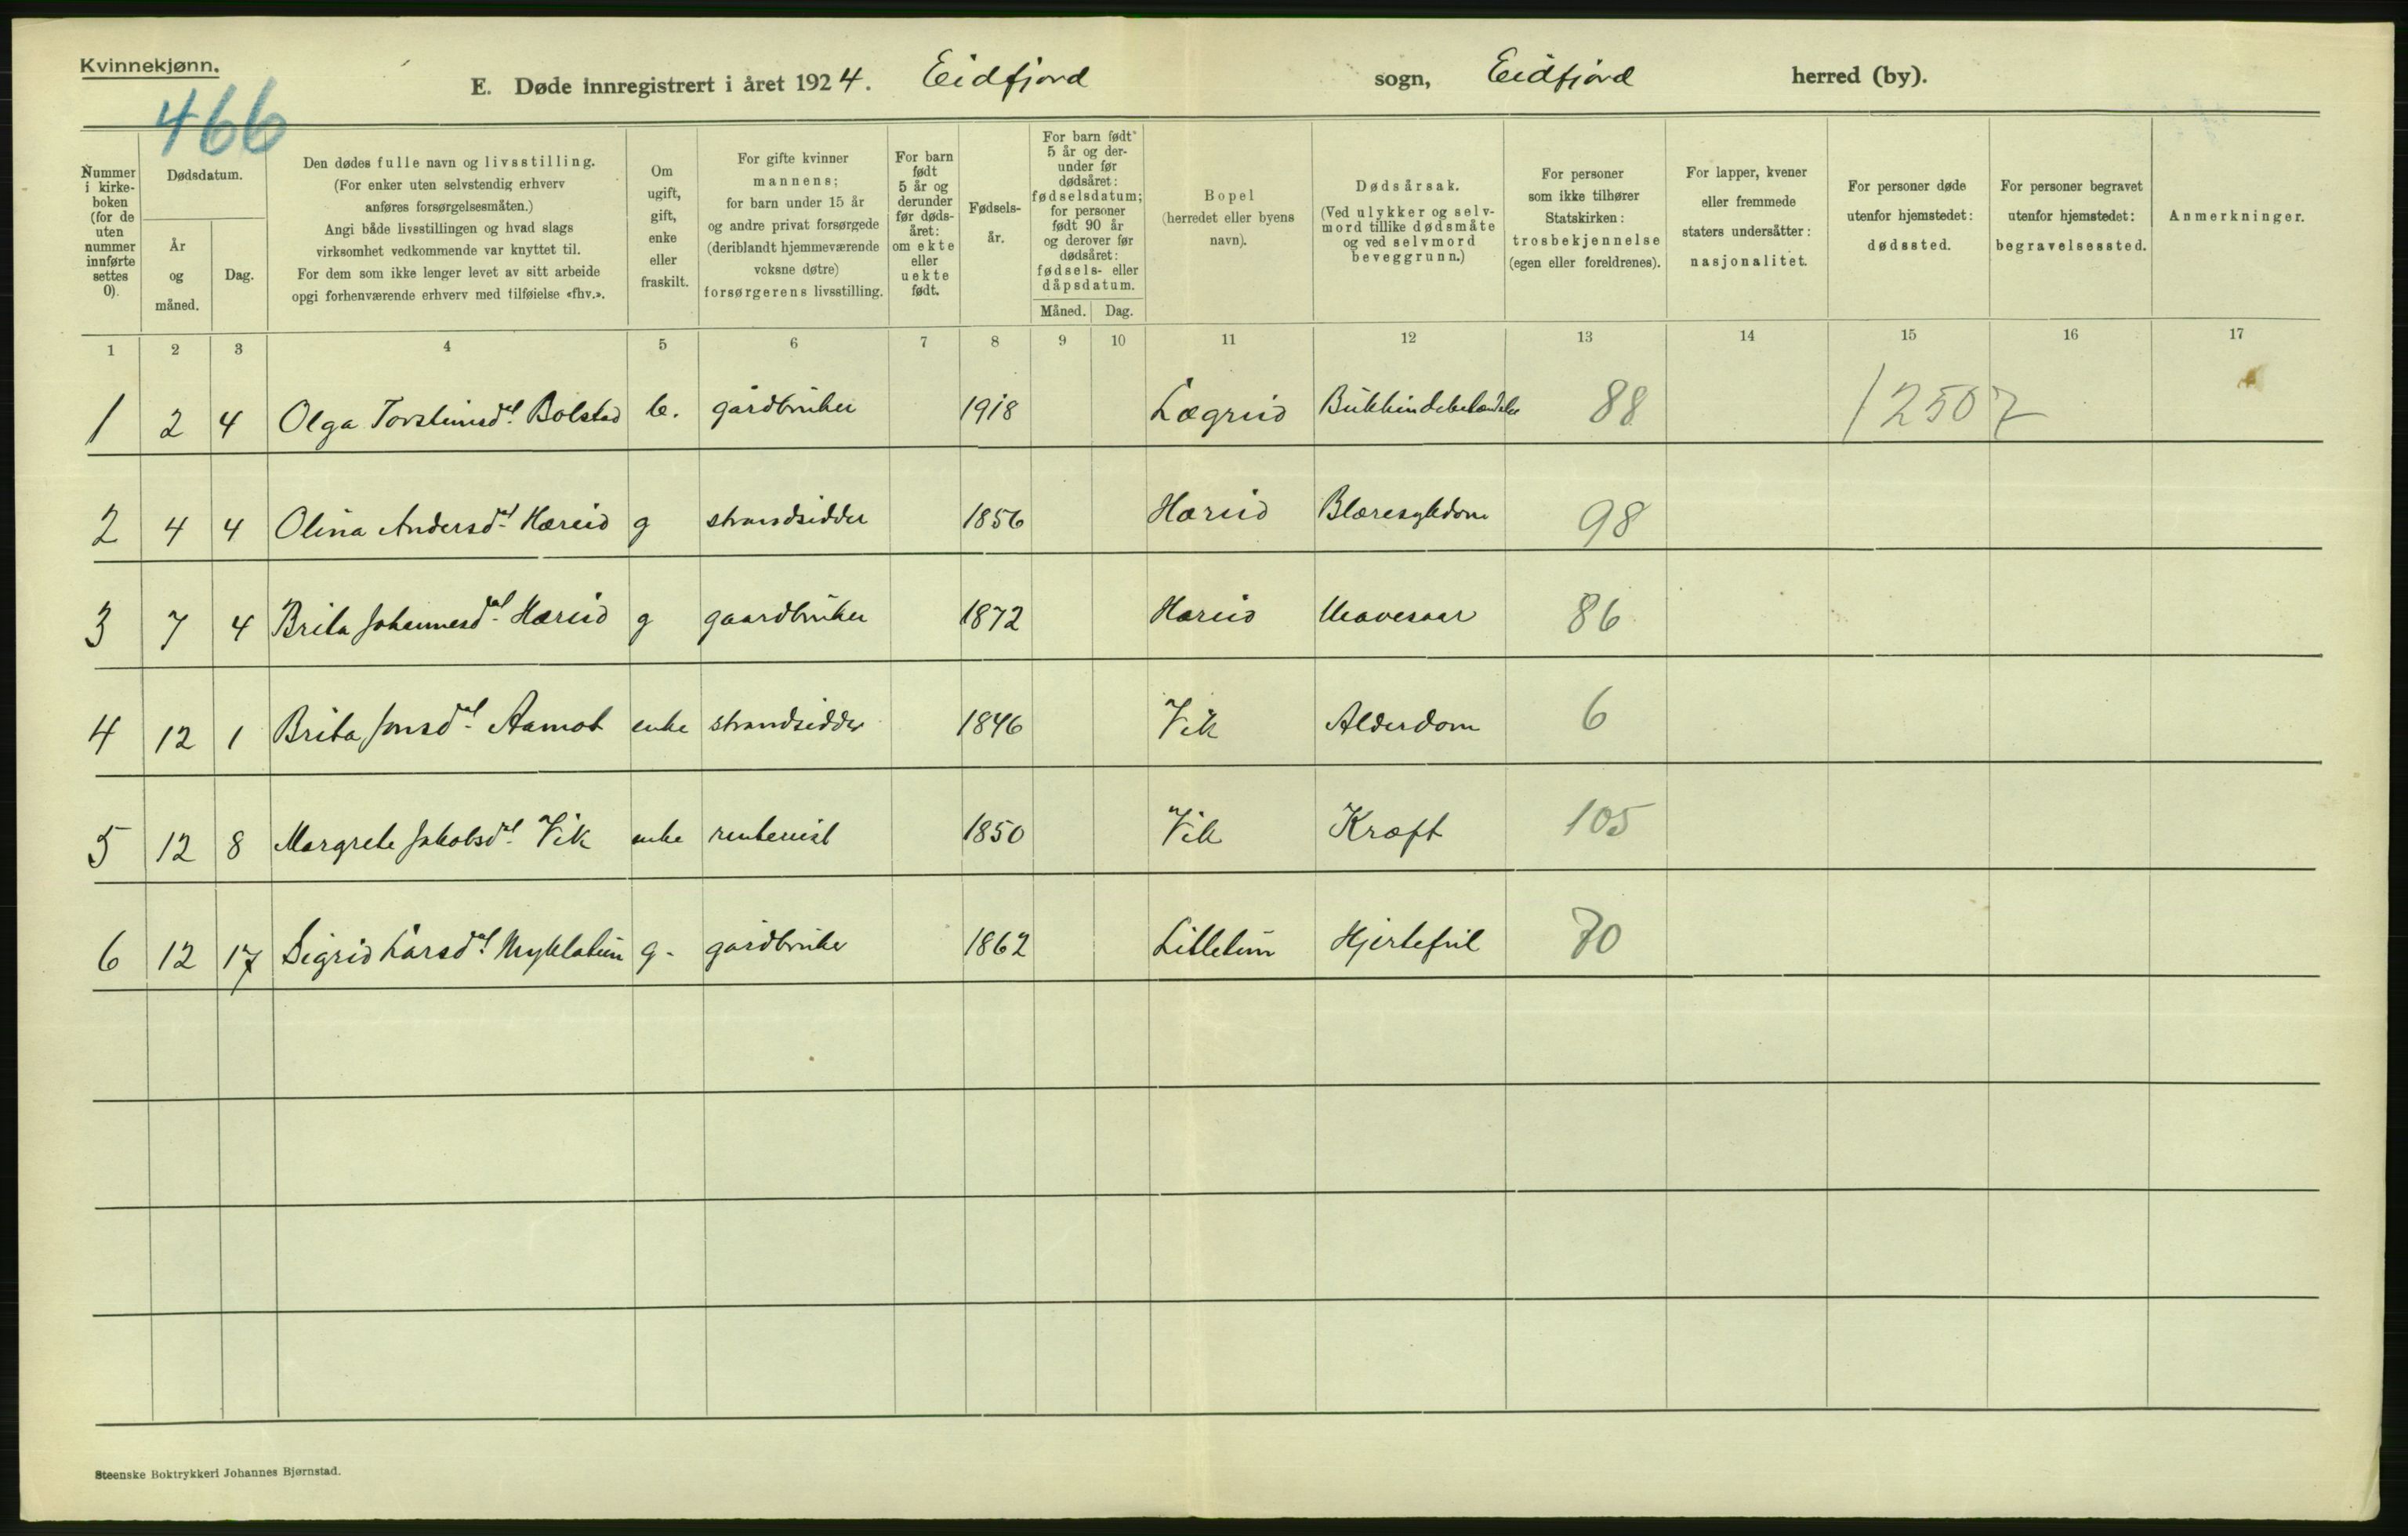 Kvinnekjønn.
466
E. Døde innregistrert i året 1924. Eidfjord sogn, Eidfjord herred (by).
Nummer i kirkeboken (for de uten nummer innførte settes 0).
Dødsdatum.
År og måned.
Dag.
Den dødes fulle navn og livsstilling.
(For enker uten selvstendig erhverv
anføres forsørgelsesmåten.)
Angi både livsstillingen og hvad slags
virksomhet vedkommende var knyttet til.
For dem som ikke lenger levet av sitt arbeide
opgi forhenværende erhverv med tilføielse «fhv.».
Om ugift, gift, enke eller fraskilt.
For gifte kvinner
mannens;
for barn under 15 år
og andre privat forsørgede
(deriblandt hjemmeværende
voksne døtre)
forsørgerens livsstilling.
For barn født 5 år og derunder før dødsåret: om ekte eller uekte født.
Fødselsår.
For barn født 5 år og derunder før dødsåret: fødselsdatum; for personer født 90 år og derover før dødsåret: fødsels- eller dåpsdatum.
Måned. Dag.
Bopel
(herredet eller byens
navn).
Dødsårsak.
(Ved ulykker og selvmord tillike dødsmåte
og ved selvmord
beveggrunn.)
For personer
som ikke tilhører
Statskirken:
trosbekjennelse
(egen eller foreldrenes).
For lapper, kvener
eller fremmede
staters undersåtter:
nasjonalitet.
For personer døde
utenfor hjemstedet:
dødssted.
For personer begravet
utenfor hjemstedet:
begravelsessted.
Anmerkninger.
1 2 3 4 5 6 7 8 9 10 11 12 13 14 15 16 17
1 2 4 Olga Torsteinsdtl. Bolstad gårdbruker 1918 Lægreid 88 12507
2 4 4 Olina Andersdtl. Hæreid g strandsidder 1856 Hæreid Blæresykdom 98
3 7 4 Brita Johannesdtl. Hæreid g gaardbruker 1872 Hæreid Mavesaar 86
4 12 1 Brita Jonsdtl. Aamot enke strandsidder 1846 Vik Alderdom 6
5 12 8 Margrete Jakobsdtl. Vik enke rentenist 1850 Vik Kræft 105
6 12 17 Sigrid Larsdtl. Myklatun g. gårdbruker 1862 Lilletun Hjertefeil 70
Steenske Boktrykkeri Johannes Bjørnstad.